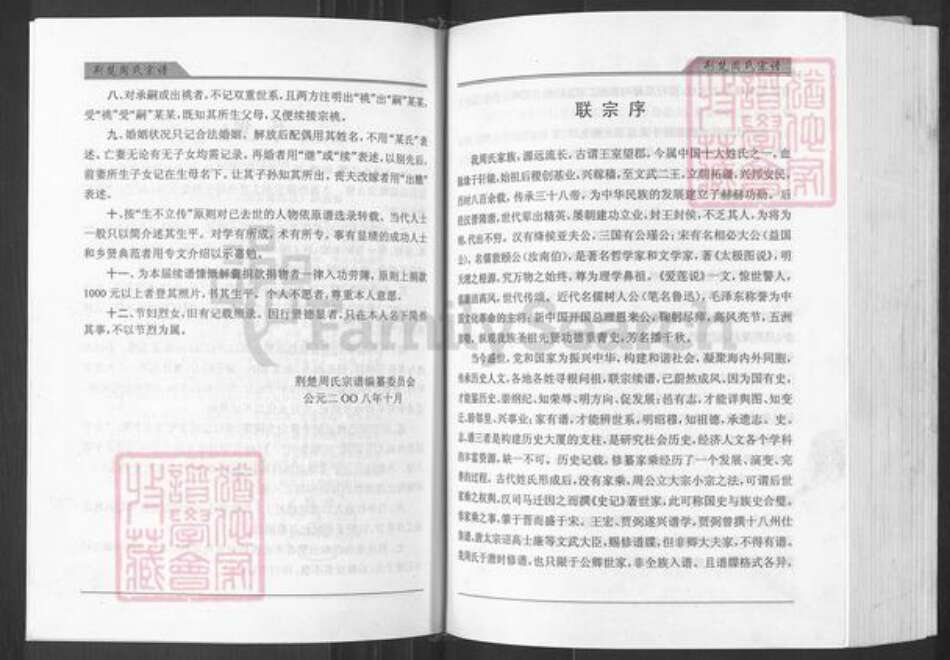 荆楚周氏宗谱
八、对承嗣或出祧者，不记双重世系，且两方注明出“祧”出“嗣”某某，
受“祧”受“嗣”某某，既知其所生父母，又便续接宗祧。
九、婚姻状况只记合法婚姻。解放后配偶用其姓名，不用“某氏”表
述。亡妻无论有无子女均需记录。再婚者用“继”或“续”表述，以别先后。
前妻所生子女记在生母名下，让其子孙知其所出，丧夫改嫁者用“出醮”
表述。
十、按“生不立传”原则对已去世的人物依原谱选录转载。当代人士
一般只以简介述其生平。对学有所成、术有所专，事有显绩的成功人士
和乡贤典范者用专文介绍以示著勉。
十一、为本届续谱慷慨解囊捐款捐物者一律入功劳簿，原则上捐款
1000元以上者登其照片，书其生平。个人不愿者，尊重本人意愿。
十二、节妇烈女，旧有记载照录。因行贤德显者，只在本人名下简叙
其事，不以节烈为属。
荆楚周氏宗谱编纂委员会
公元二〇〇八年十月
荆楚周氏宗谱
联宗序
我周氏家族，源远流长，古谓王室望郡，今属中国十大姓氏之一，血
脉缘于轩辕，始祖后稷创基业，兴稼穑，至文武二王，立朝拓疆，兴邦安民，
历时八百余载，传承三十八帝，为中华民族的发展建立了赫赫功勋。后
经汉晋隋唐，世代辈出精英，屡朝建功立业，封王封侯，不乏其人，为将为
相，代出不穷。汉有绛侯亚夫公，三国有公瑾公；宋有名相必大公（益国
公），名儒敦颐公（汝南伯），是著名哲学家和文学家，著《太极图说》，明
天理之根源，究万物之始终，尊为理学鼻祖，《爱莲说》一文，惊世警人，
清高风，世代传颂。近代名儒树人公（笔名鲁迅），毛泽东称誉为中
国文化革命的主将；新中国开国总理恩来公，鞠躬尽瘁，高风亮节，五洲
纵观我族圣祖先贤功德垂青史，芳名播千秋。
当今盛世，党和国家为振兴中华，构建和谐社会，凝聚海内外同胞，
传承历史人文，各地各姓寻根问祖，联宗续谱，已蔚然成风，因为国有史，
才能鉴历史、崇纲纪、知荣辱、明方向、促发展；邑有志，才能详舆图、知变
迁、睦邻里、兴事业；家有谱，才能辨世系，明昭穆，知祖德，承遗志。史、
志、谱三者是构建历史大厦的支柱，是研究社会历史、经济人文各个学科
的丰富资源，缺一不可。历史记载，修纂家乘经历了一个发展、演变、完
善的过程。古代姓氏形成后，没有家乘，周公立大宗小宗之法，可谓后世
家乘之权舆，汉司马迁因之而撰《史记》著世家，此可称国史与族史合璧。
修家乘之事，肇于晋而盛于宋。王宏、贾弼遂兴谱学，贾弼曾撰十八州仕
族谱，唐太宗诏高士廉等文武大臣，赐修谱牒，但非卿大夫家，不得有谱。
我周氏于唐时修谱，也只限于公卿世家，非全族入谱。且谱牒格式各异，
FamilySearch